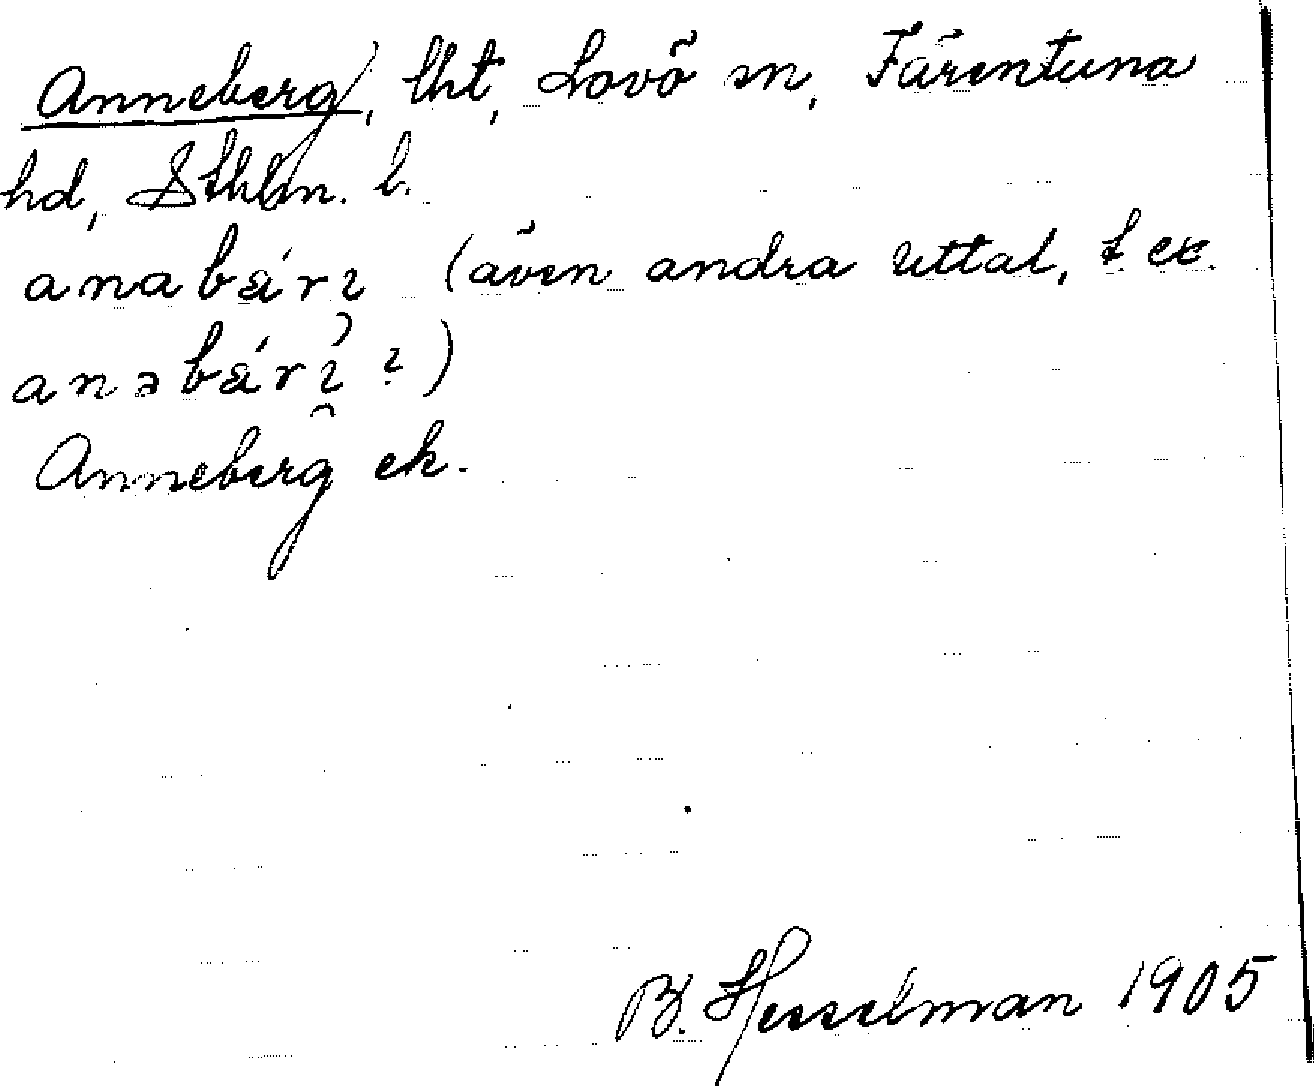 Anneberg, lht, Lovö sn, Färentuna
hd, Sthlm. l.
anabǽrı (även andra uttal, t ex.
anəbǽrı ?)
Anneberg ek.
B. Hesselman 1905